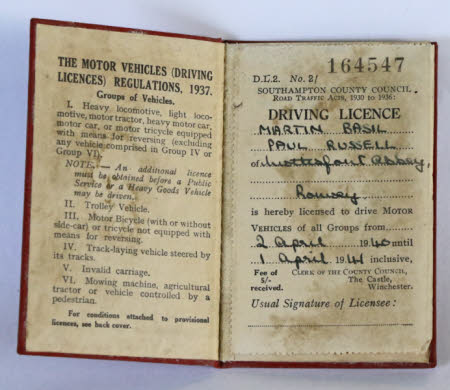 THE MOTOR VEHICLES (DRIVING
LICENCES) REGULATIONS, 1937.
Groups of Vehicles.
I. Heavy locomotive, light loco-
motive, motor tractor, heavy motor car,
motor car, or motor tricycle equipped
with means for reversing (excluding
any vehicle comprised in Group IV or
Group VI).
NOTE.—An additional licence
must be obtained before a Public
Service or a Heavy Goods Vehicle
may be driven.
II. Trolley Vehicle.
III. Motor Bicycle (with or without
side-car) or tricycle not equipped with
means for reversing.
IV. Track-laying vehicle steered by
its tracks.
V. Invalid carriage.
VI. Mowing machine, agricultural
tractor or vehicle controlled by a
pedestrian.
For conditions attached to provisional
licences, see back cover.
164547
D.L.2. No. 21
SOUTHAMPTON COUNTY COUNCIL.
ROAD TRAFFIC ACTS, 1930 to 1936:
DRIVING LICENCE
MARTIN BASIL
PAUL RUSSELL
of Mottisfont Abbey,
Romsey
is hereby licensed to drive MOTOR
VEHICLES of all Groups from
2 April 1940 until
1 April 1941 inclusive,
Fee of CLERK OF THE COUNTY COUNCIL,
5/- The Castle,
received. Winchester.
Usual Signature of Licensee: